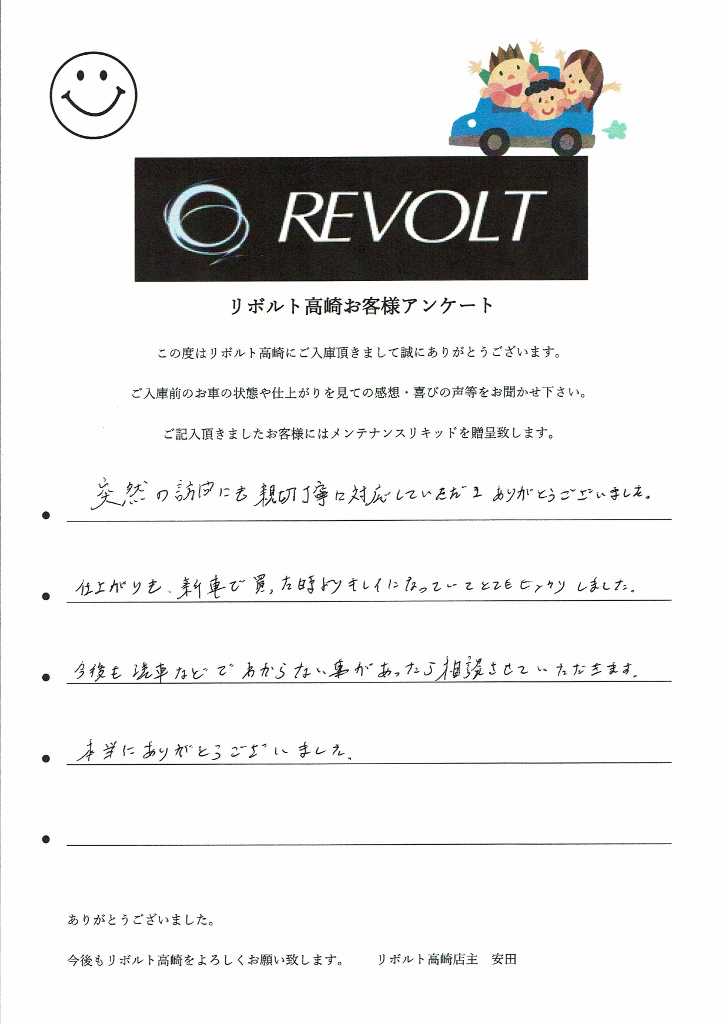 REVOLT
リボルト高崎お客様アンケート
この度はリボルト高崎にご入庫頂きまして誠にありがとうございます。
ご入庫前のお車の状態や仕上がりを見ての感想・喜びの声等をお聞かせ下さい。
ご記入頂きましたお客様にはメンテナンスリキッドを贈呈致します。
突然の訪問にも親切丁寧に対応していただき ありがとうございました。
仕上がりも、新車で買った時よりキレイになっていてとてもビックリしました。
今後も洗車などでわからない事があったら相談させていただきます。
本当にありがとうございました。
ありがとうございました。
今後もリボルト高崎をよろしくお願い致します。 リボルト高崎店主 安田